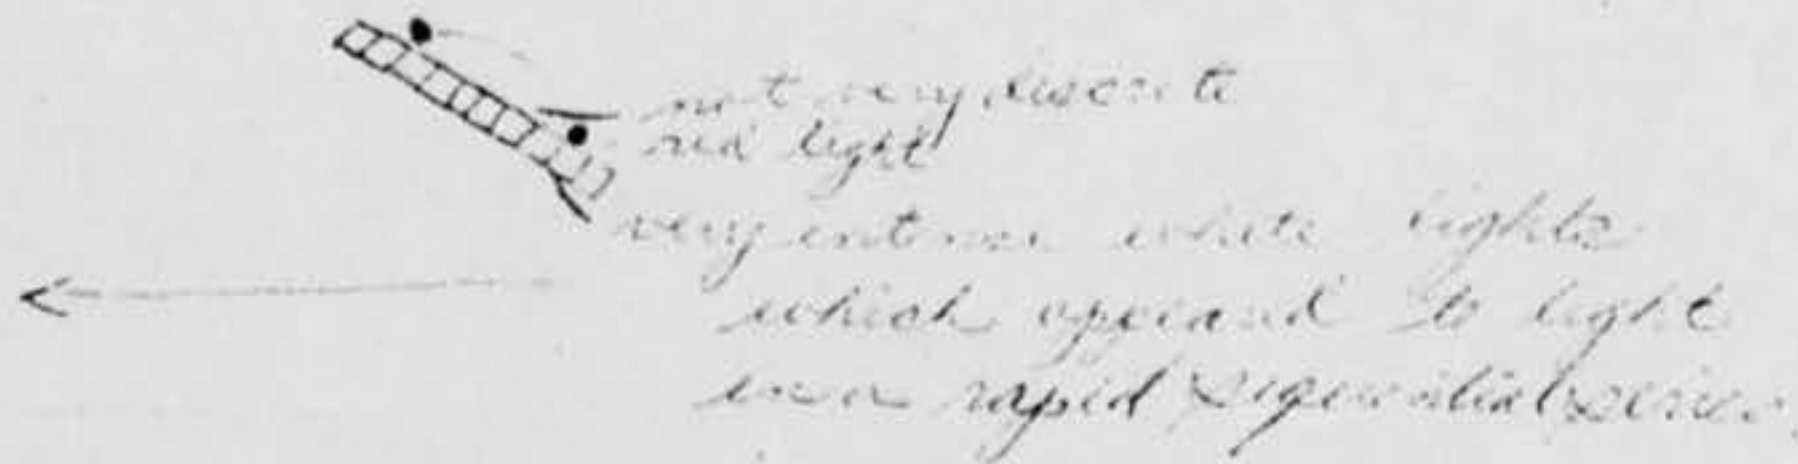 not very discrete
red light
very intense white lights
which appeared to light
in a rapid sequential series